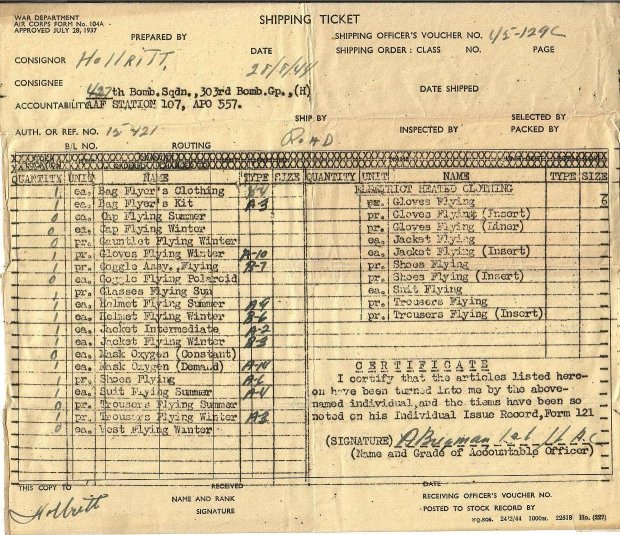 WAR DEPARTMENT
AIR CORPS FORM No. 104A
APPROVED JULY 28, 1937
SHIPPING TICKET
PREPARED BY
SHIPPING OFFICER'S VOUCHER NO. 45-129C
CONSIGNOR Hollritt.
DATE
SHIPPING ORDER: CLASS NO. PAGE
CONSIGNEE
427th Bomb.Sqdn.,303rd Bomb.Gp.,(H)
DATE SHIPPED
ACCOUNTABILITY AAF STATION 107, APO 557.
SHIP BY
SELECTED BY
AUTH. OR REF. NO. 15-421
ROAD
INSPECTED BY PACKED BY
B/L NO. ROUTING
QUANTITY UNIT NAME TYPE SIZE QUANTITY UNIT NAME TYPE SIZE
1 ea. Bag Flyer's Clothing ELECTRICT HEATED CLOTHING
1 ea. Bag Flyer's Kit A-3 pr. Gloves Flying 6
0 ea. Cap Flying Summer pr. Gloves Flying (Insert)
0 ea. Cap Flying Winter pr. Gloves Flying (Liner)
0 pr. Gauntlet Flying Winter ea. Jacket Flying
1 pr. Gloves Flying Winter A-10 ea. Jacket Flying (Insert)
1 pr. Goggle Assy.,Flying B-7 pr. Shoes Flying
0 ea. Goggle Flying Polaroid pr. Shoes Flying (Insert)
pr. Glasses Flying Sun ea. Suit Flying
1 ea. Helmet Flying Summer A-9 pr. Trousers Flying
1 ea. Helmet Flying Winter B-6 pr. Trousers Flying (Insert)
1 ea. Jacket Intermediate A-2
1 ea. Jacket Flying Winter B-3
0 ea. Mask Oxygen (Constant)
1 ea. Mask Oxygen (Demand) A-14
1 pr. Shoes Flying A-6
ea. Suit Flying Summer A-4
0 pr. Trousers Flying Summer
1 pr. Trousers Flying Winter A-3
0 ea. Vest Flying Winter
CERTIFICATE
I certify that the articles listed here-
on have been turned into me by the above-
named individual, and the tiems have been so
noted on his Individual Issue Record, Form 121
(SIGNATURE)
(Name and Grade of Accountable Officer)
THIS COPY TO RECEIVED DATE
Hollritt
NAME AND RANK
SIGNATURE
RECEIVING OFFICER'S VOUCHER NO.
POSTED TO STOCK RECORD BY
HQ.SOS. 24/2/44 1000m. 22518 Ho. (227)